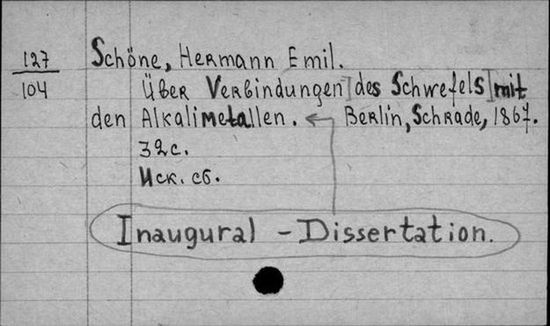 127
104
Schöne, Hermann Emil.
Über Verbindungen [des Schwefels] mit
den Alkalimetallen. ← Berlin, Schrade, 1867.
32 с.
Иск. сб.
Inaugural - Dissertation.